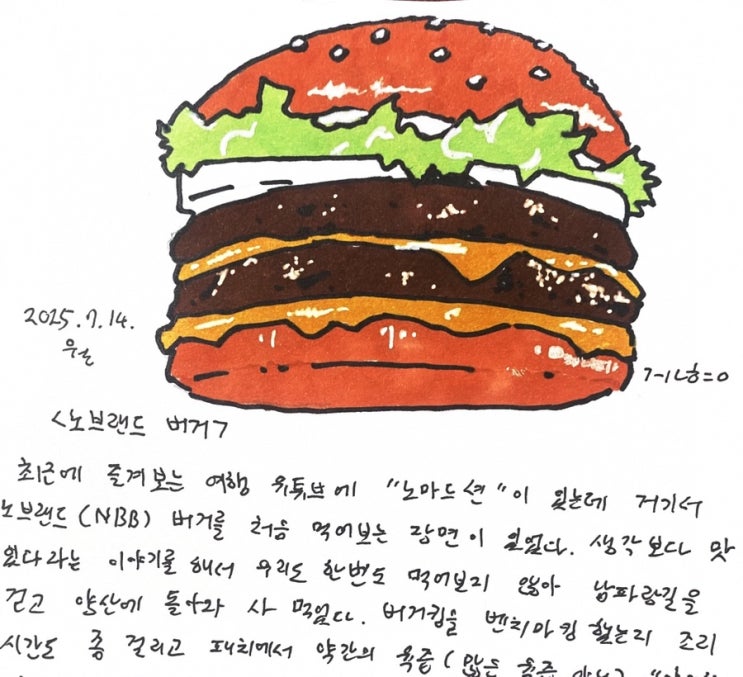 2025.7.14.
<노브랜드 버거>
최근에 즐겨보는 여행 유튜브에 "노마드션"이 있는데 거기서
노브랜드(NBB) 버거를 처음 먹어보는 장면이 있었다. 생각보다 맛
있다라는 이야기를 해서 우리도 한번도 먹어보지 않아 남파랑길을
걷고 양산에 돌아와 사 먹었다. 버거킹을 벤치마킹 했는지 조리
시간도 좀 걸리고 패치에서 약간의 육즙(많은 육즙